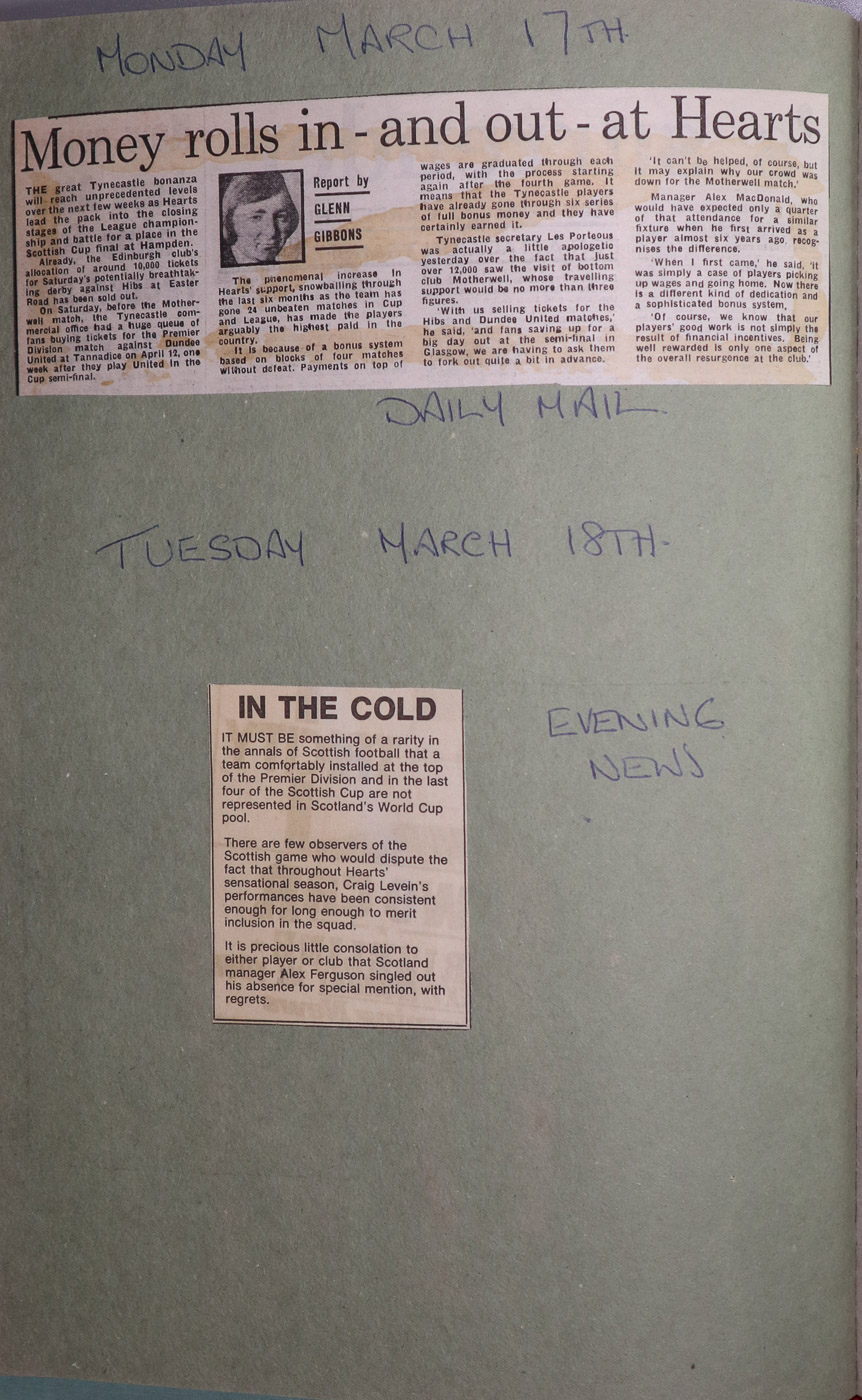 MONDAY MARCH 17TH.
Money rolls in - and out - at Hearts
THE great Tynecastle bonanza
will reach unprecedented levels
over the next few weeks as Hearts
lead the pack into the closing
stages of the League champion-
ship and battle for a place in the
Scottish Cup final at Hampden.
Already, the Edinburgh club's
allocation of around 10,000 tickets
for Saturday's potentially breathtak-
ing derby against Hibs at Easter
Road has been sold out.
On Saturday, before the Mother-
well match, the Tynecastle com-
mercial office had a huge queue of
fans buying tickets for the Premier
Division match against Dundee
United at Tannadice on April 12, one
week after they play United in the
Cup semi-final.
Report by
GLENN
GIBBONS
The phenomenal increase in
Hearts' support, snowballing through
the last six months as the team has
gone 24 unbeaten matches in Cup
and League, has made the players
arguably the highest paid in the
country.
It is because of a bonus system
based on blocks of four matches
without defeat. Payments on top of
wages are graduated through each
period, with the process starting
again after the fourth game. It
means that the Tynecastle players
have already gone through six series
of full bonus money and they have
certainly earned it.
Tynecastle secretary Les Porteous
was actually a little apologetic
yesterday over the fact that just
over 12,000 saw the visit of bottom
club Motherwell, whose travelling
support would be no more than three
figures.
'With us selling tickets for the
Hibs and Dundee United matches,'
he said, 'and fans saving up for a
big day out at the semi-final in
Glasgow, we are having to ask them
to fork out quite a bit in advance.
'It can't be helped, of course, but
it may explain why our crowd was
down for the Motherwell match.'
Manager Alex MacDonald, who
would have expected only a quarter
of that attendance for a similar
fixture when he first arrived as a
player almost six years ago, recog-
nises the difference.
'When I first came,' he said, 'it
was simply a case of players picking
up wages and going home. Now there
is a different kind of dedication and
a sophisticated bonus system.
'Of course, we know that our
players' good work is not simply the
result of financial incentives. Being
well rewarded is only one aspect of
the overall resurgence at the club.'
DAILY MAIL.
TUESDAY MARCH 18TH.
IN THE COLD
IT MUST BE something of a rarity in
the annals of Scottish football that a
team comfortably installed at the top
of the Premier Division and in the last
four of the Scottish Cup are not
represented in Scotland's World Cup
pool.
There are few observers of the
Scottish game who would dispute the
fact that throughout Hearts'
sensational season, Craig Levein's
performances have been consistent
enough for long enough to merit
inclusion in the squad.
It is precious little consolation to
either player or club that Scotland
manager Alex Ferguson singled out
his absence for special mention, with
regrets.
EVENING
NEWS